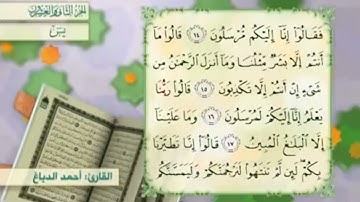 الجزء الثاني والعشرون
يسٓ
فَقَالُوٓا۟ إِنَّآ إِلَيْكُم مُّرْسَلُونَ ﴿١٤﴾ قَالُوا۟ مَآ
أَنتُمْ إِلَّا بَشَرٌ مِّثْلُنَا وَمَآ أَنزَلَ ٱلرَّحْمَٰنُ مِن
شَىْءٍ إِنْ أَنتُمْ إِلَّا تَكْذِبُونَ ﴿١٥﴾ قَالُوا۟ رَبُّنَا
يَعْلَمُ إِنَّآ إِلَيْكُمْ لَمُرْسَلُونَ ﴿١٦﴾ وَمَا عَلَيْنَآ
إِلَّا ٱلْبَلَٰغُ ٱلْمُبِينُ ﴿١٧﴾ قَالُوٓا۟ إِنَّا تَطَيَّرْنَا
بِكُمْ لَئِن لَّمْ تَنتَهُوا۟ لَنَرْجُمَنَّكُمْ وَلَيَمَسَّنَّكُم
القارئ: أحمد الدباغ